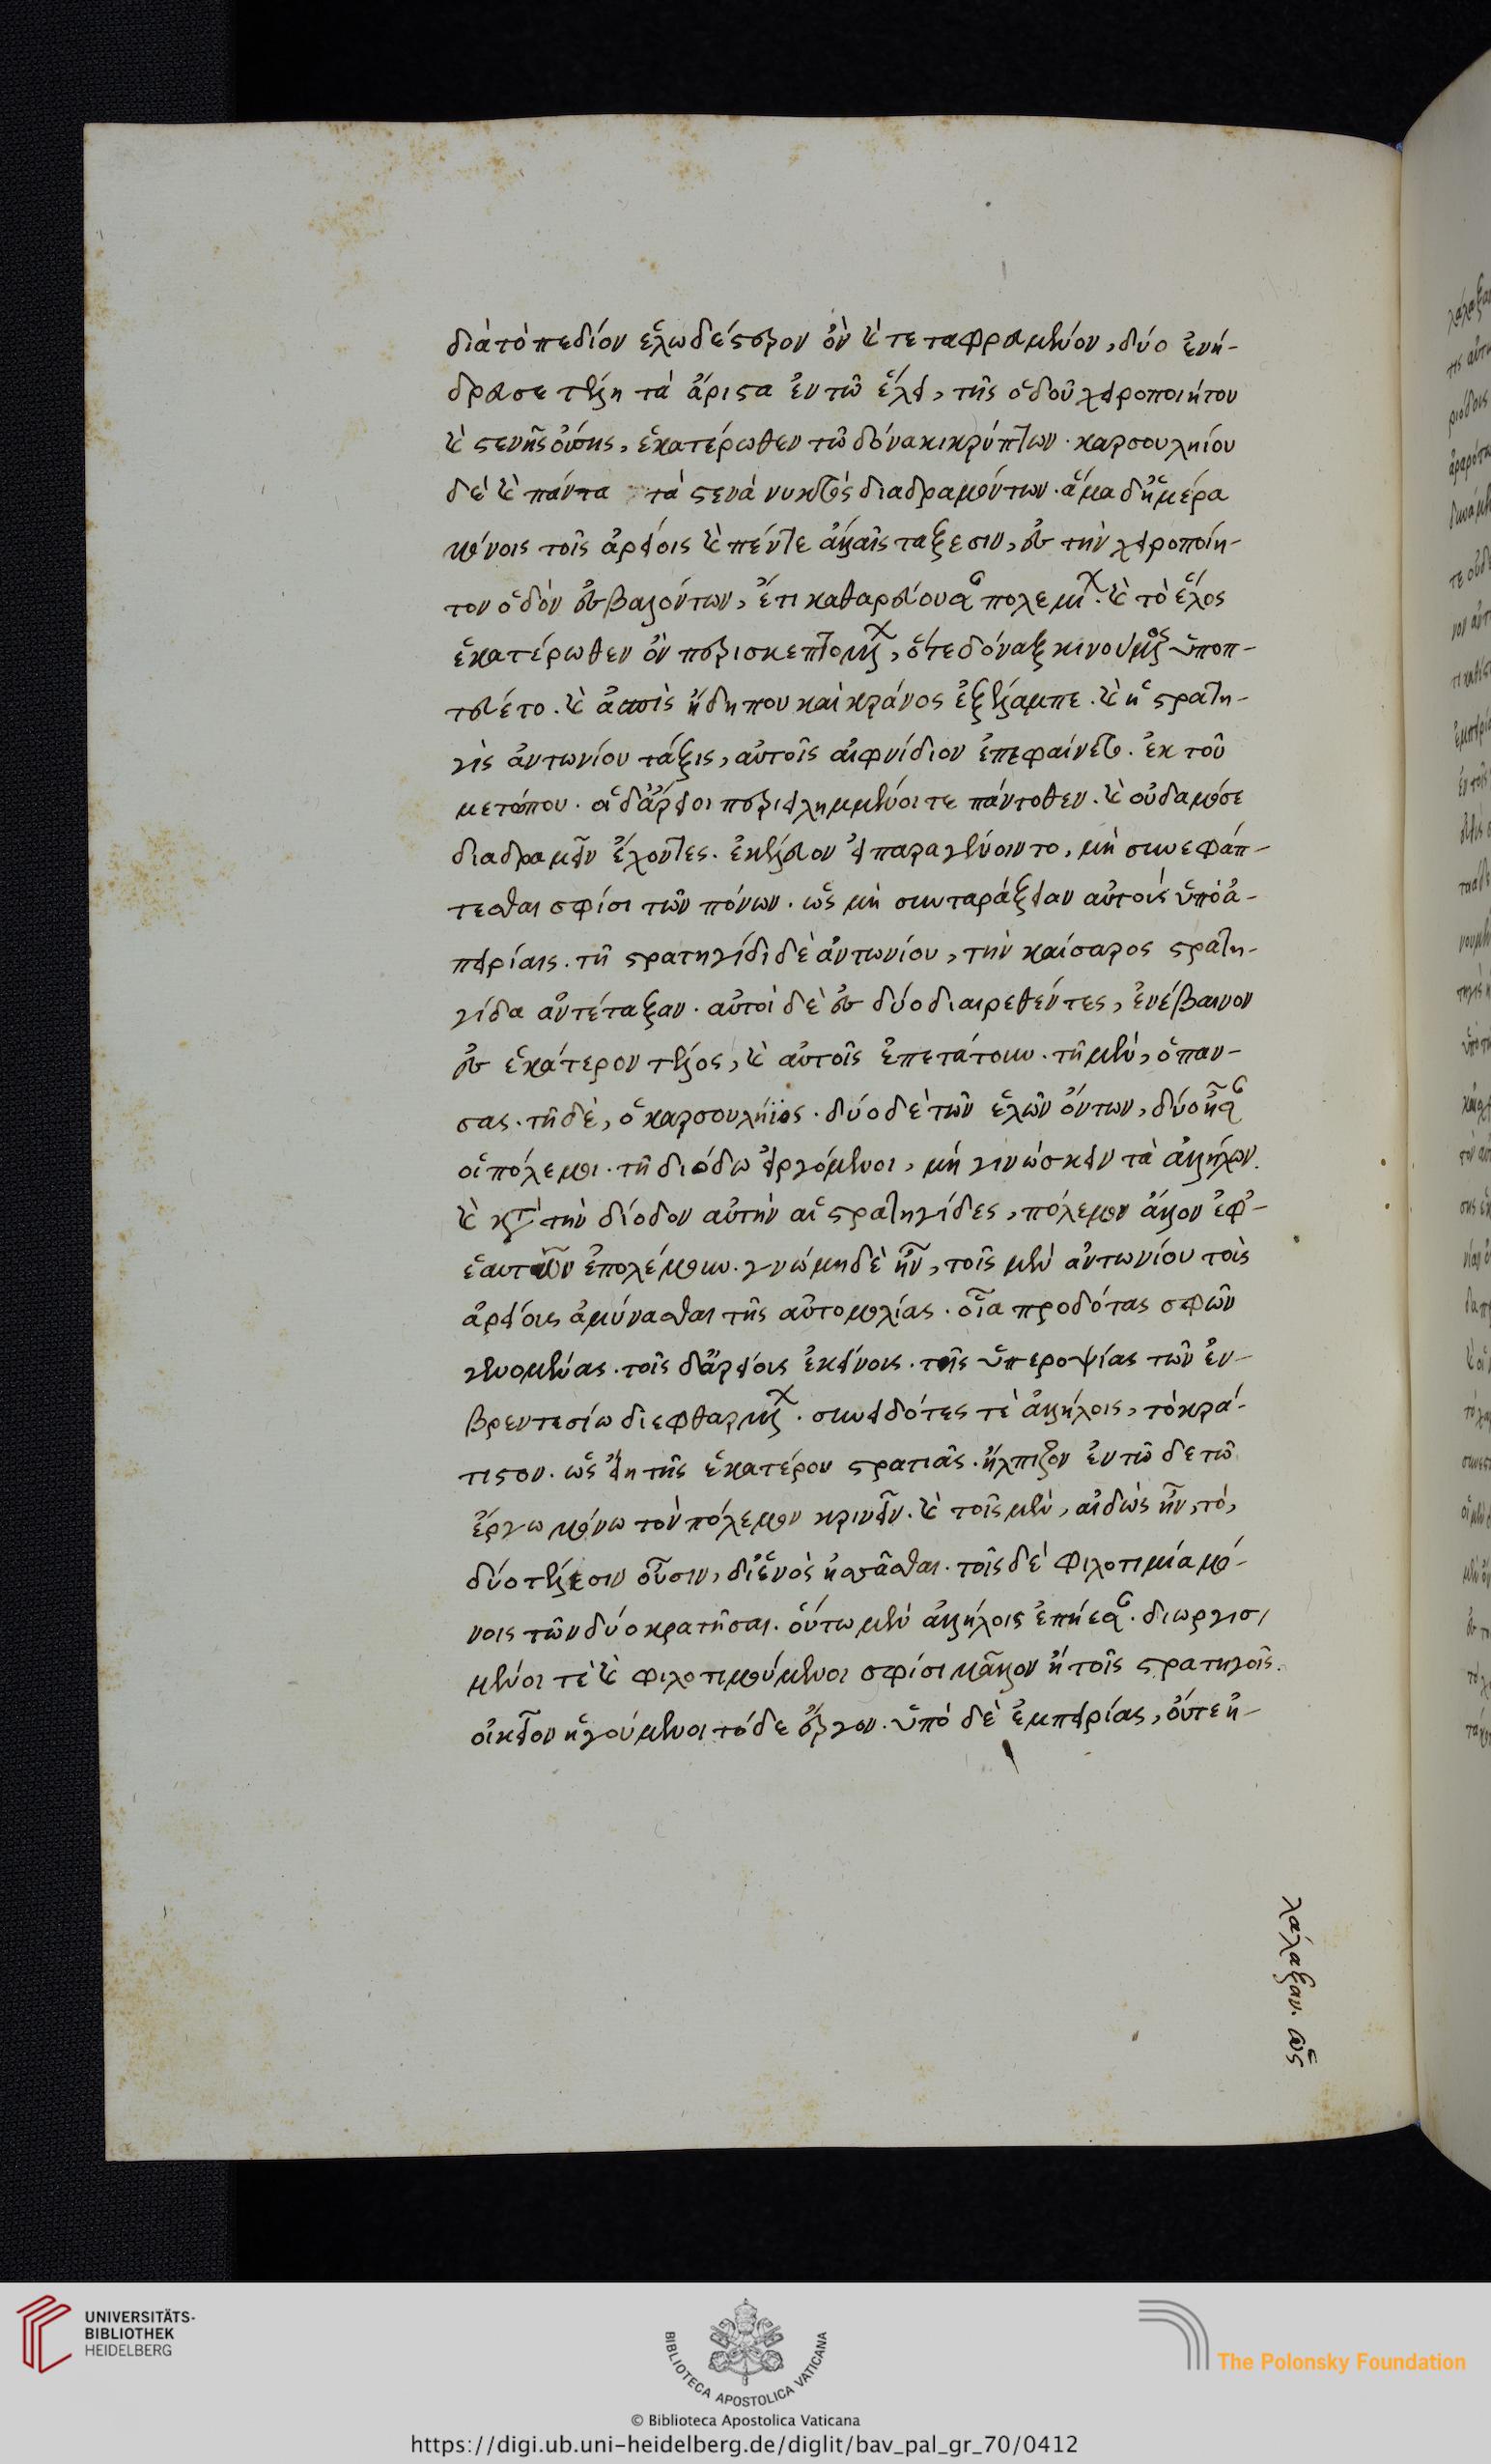 διὰ τὸ πεδίον ἑλωδέστερον ὂν καὶ τεταφρευμένον, δύο ἐνή-
δρευσε τέλη τὰ ἄριστα ἐν τῷ ἕλει, τῆς ὁδοῦ χειροποιήτου
καὶ στενῆς οὔσης, ἑκατέρωθεν τῷ δόνακι κρύπτων. καρσουληίου
δὲ καὶ πάντα τὰ στενὰ νυκτὸς διαδραμόντων. ἅμα δ' ἡμέρα
μόνοις τοῖς ἀρείοις καὶ πέντε ἄλλαις ταξεσιν, ἐς τὴν χειροποίη-
τον ὁδὸν ἐσβαλόντων, ἔτι καθαρεύουσαν πολεμίων. καὶ τὸ ἕλος
ἑκατέρωθεν ὂν περισκεπτομένων, ὅ τε δόναξ κινούμενος ὑποπ-
τεύετο. καὶ ἀσπὶς ἤδη που καὶ κράνος ἐξέλαμπε. καὶ ἡ στρατη-
γὶς ἀντωνίου τάξις, αὐτοῖς αἰφνίδιον ἐπεφαίνετο. ἐκ τοῦ
μετώπου. οἱ δ' ἄρειοι περιειλημμένοι τε πάντοθεν. καὶ οὐδαμόσε
διαδραμεῖν ἔχοντες. ἐκέλευον εἰ παραγένοιντο, μὴ συνεφάπ-
τεσθαι σφίσι τῶν πόνων. ὡς μὴ συνταράξειαν αὐτοὺς ὑπὸ ἀ-
πειρίας. τῇ στρατηγίδι δὲ ἀντωνίου, τὴν καίσαρος στρατη-
γίδα ἀντέταξαν. αὐτοὶ δὲ ἐς δύο διαιρεθέντες, ἐνέβαινον
ἐς ἑκάτερον τέλος, καὶ αὐτοῖς ἐπετάτουν. τῇ μὲν, ὁ παν-
σας. τῇ δὲ, ὁ καρσουλήϊος. δύο δὲ τῶν ἑλῶν ὄντων, δύο ἦσαν
οἱ πόλεμοι. τῇ διόδω εἰργόμενοι, μὴ γινώσκειν τὰ ἀλλήλων.
καὶ κατὰ τὴν δίοδον αὐτὴν αἱ στρατηγίδες, πόλεμον ἄλλον ἐφ' -
ἑαυτῶν ἐπολέμουν. γνώμη δὲ ἦν, τοῖς μὲν ἀντωνίου τοὺς
ἀρείους ἀμύνασθαι τῆς αὐτομολίας. οἷα προδότας σφῶν
γενομένας. τοῖς δ' ἀρείοις ἐκείνους. τῆς ὑπεροψίας τῶν ἐν-
βρεντεσίω διεφθαρμένων. συνειδότες τὲ ἀλλήλοις, τὸ κρά-
τιστον. ὡς εἴη τῆς ἑκατέρου στρατιᾶς. ἤλπιζον ἐν τῷδε τῷ
ἔργω μόνω τὸν πόλεμον κρινεῖν. καὶ τοῖς μὲν, αἰδὼς ἦν, τὸ,
δύο τέλεσιν οὖσιν, δι' ἑνὸς ἡσσᾶσθαι. τοῖς δὲ φιλοτιμία μό-
νοις τῶν δύο κρατῆσαι. οὕτω μὲν ἀλλήλοις ἐπήεσαν. διωργισ
μένοι τὲ καὶ φιλοτιμούμενοι σφίσι μᾶλλον ἢ τοῖς στρατηγοῖς.
οἰκεῖον ἡγούμενοι τόδε ἔργον. ὑπὸ δὲ ἐμπειρίας, οὔτε ἠ-
λάλαξαν. ὡς
UNIVERSITÄTS-
BIBLIOTHEK
HEIDELBERG
BIBLIOTECA APOSTOLICA VATICANA
The Polonsky Foundation
© Biblioteca Apostolica Vaticana
https://digi.ub.uni-heidelberg.de/diglit/bav_pal_gr_70/0412